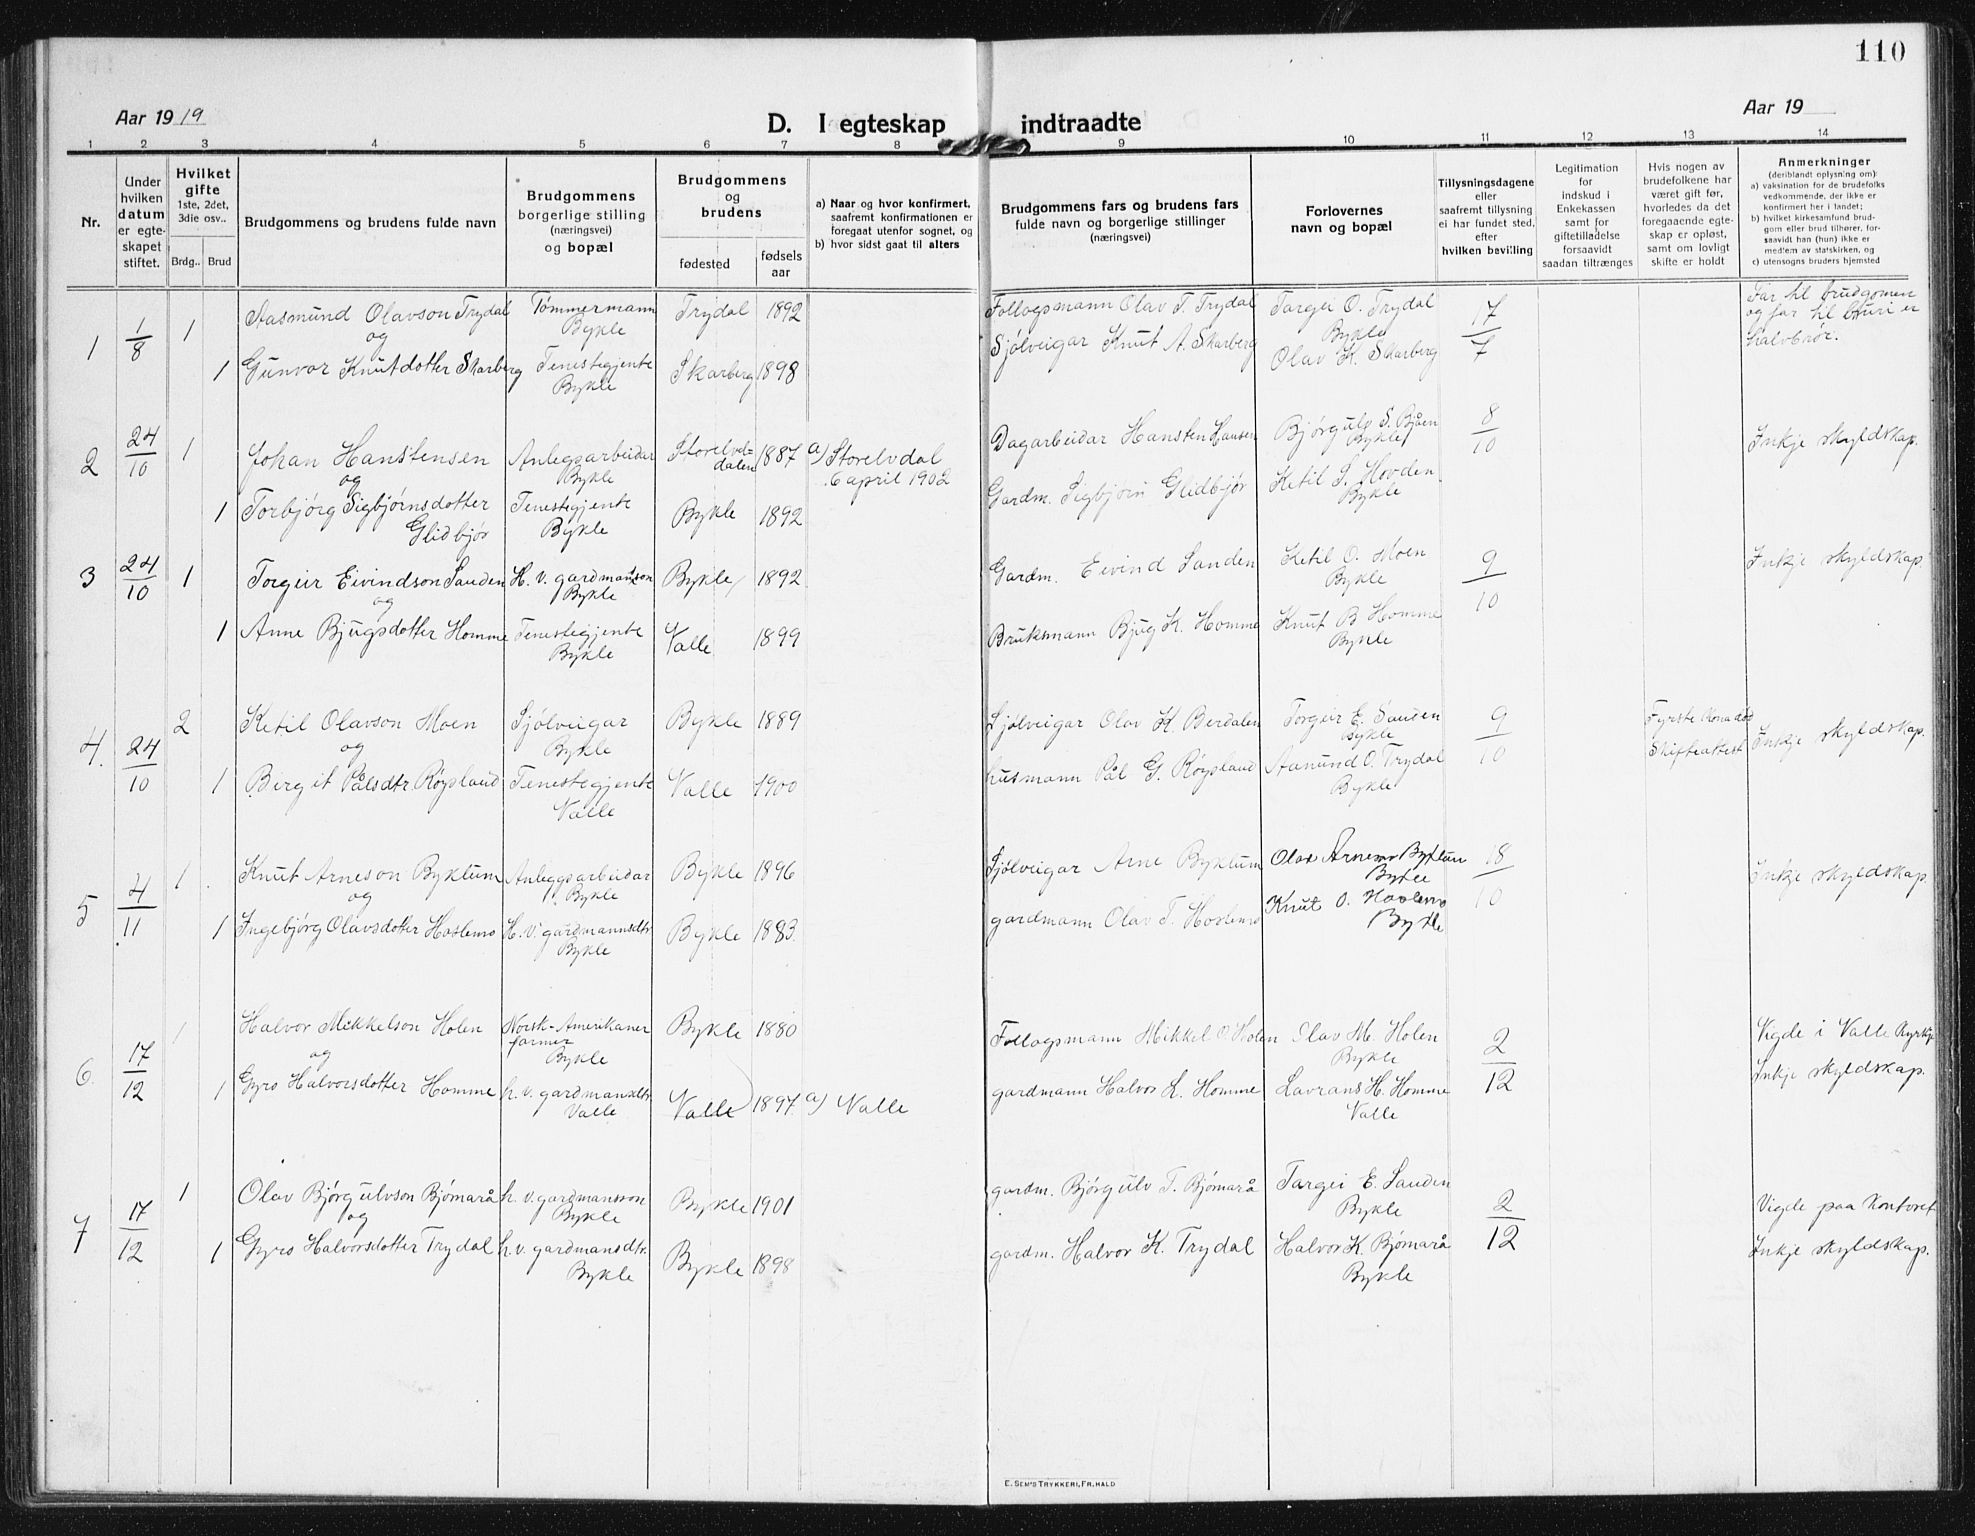 110
Aar 1919
D. I egteskap indtraadte
Aar 19
1 2 3 4 5 6 7 8 9 10 11 12 13 14
Nr.
Under hvilken datum er egteskapet stiftet.
Hvilket gifte 1ste, 2det, 3die osv..
Brdg.. Brud
Brudgommens og brudens fulde navn
Brudgommens borgerlige stilling (næringsvei) og bopæl
Brudgommens og brudens
fødested
fødsels aar
a) Naar og hvor konfirmert, saafremt konfirmationen er foregaat utenfor sognet, og
b) hvor sidst gaat til alters
Brudgommens fars og brudens fars fulde navn og borgerlige stillinger (næringsvei)
Forlovernes navn og bopæl
Tillysningsdagene eller saafremt tillysning ei har fundet sted, efter hvilken bevilling
Legitimation for indskud i Enkekassen samt for giftetilladelse forsaavidt saadan tiltrænges
Hvis nogen av brudefolkene har været gift før, hvorledes da det foregaaende egteskap er opløst, samt om lovligt skifte er holdt
Anmerkninger (deriblandt oplysning om):
a) vaksination for de brudefolks vedkommende, der ikke er konfirmert her i landet;
b) hvilket kirkesamfund brudgom eller brud tilhører, forsaavidt han (hun) ikke er medlem av statskirken, og
c) utensogns bruders hjemsted
1 1/8 1 Aasmund Olavson Trydal Tømmermann Bykle Trydal 1892 Follogsmann Olav T. Trydal Targei O. Trydal Bykle 17/7 Far til brudgomen og far til bruri er halvbrør.
og
1 Gunvor Knutdotter Skarberg Tenestegjente Bykle Skarberg 1898 Sjølveigar Knut A. Skarberg Olav K. Skarberg
2 24/10 1 Johan Hanstensen Anlegsarbeidar Bykle Storelvdalen 1887 a) Storelvdal 6 april 1902 Dagarbeidar Hansten Hansen Bjørgulv S. Bjåen Bykle 8/10 Inkje skyldskap.
og
1 Torbjørg Sigbjørnsdotter Glidbjør Tenestegjente Bykle Bykle 1892 Gardm. Sigbjørn Glidbjør Ketil S. Hovden Bykle
3 24/10 1 Torgeir Eivindson Sanden H. v. gardmannson Bykle Bykle 1892 Gardm. Eivind Sanden Ketil O. Moen Bykle 9/10 Inkje skyldskap.
og
1 Anne Bjugsdotter Homme Tenestegjente Bykle Valle 1899 Bruksmann Bjug K. Homme Knut B Homme Bykle
4. 24/10 2 Ketil Olavson Moen Sjølveigar Bykle Bykle 1889 Sjølveigar Olav K. Berdalen Torgeir E. Sanden Bykle 9/10 Fyrste kona død Skifteattest Inkje skyldskap.
og
1 Bergit Pålsdtr. Røysland Tenestegjente Valle Valle 1900 husmann Pål G. Røysland Aamund O. Trydal Bykle
5 4/11 1 Knut Arneson Byklum Anleggsarbeidar Bykle Bykle 1896 Sjølveigar Arne Byklum Olav Arneson Byklum Bykle 18/10 Inkje skyldskap.
og
1 Ingebjørg Olavsdotter Hoslemo H. v. gardmannsdtr. Bykle Bykle 1883. gardmann Olav T. Hoslemo Knut O. Hoslemo Bykle
6. 17/12 1 Halvor Mikkelson Holen Norsk-Amerikaner farmer Bykle Bykle 1880 Follogsmann Mikkel O Holen Olav M. Holen Bykle 2/12 Vigde i Valle kyrkje Inkje skyldskap.
og
1 Gyro Halvorsdotter Homme h. v. gardmansdtr. Valle Valle 1897 a) Valle gardmann Halvor L. Homme Lavrans H. Homme Valle
7 17/12 1 Olav Bjørgulvson Bjømarå h. v. gardmansson Bykle Bykle 1901 gardm. Bjørgulv T. Bjømarå Targei E. Sanden Bykle 2/12 Vigde paa kontoret Inkje skyldskap.
og
1 Gyro Halvorsdotter Trydal h. v. gardmansdtr. Bykle Bykle 1898 gardm. Halvor K. Trydal Halvor K. Bjømarå Bykle
E. SEM'S TRYKKERI, FR.HALD